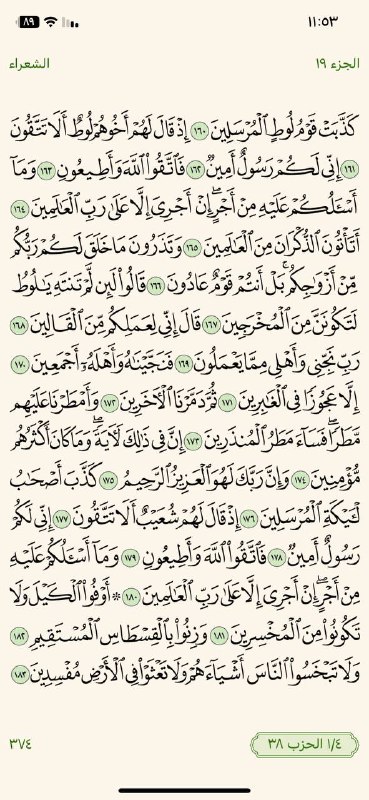 ١١:٥٣
٨٩
الجزء ١٩
الشعراء
كَذَّبَتۡ قَوۡمُ لُوطٍ ٱلۡمُرۡسَلِينَ ١٦٠ إِذۡ قَالَ لَهُمۡ أَخُوهُمۡ لُوطٌ أَلَا تَتَّقُونَ
١٦١ إِنِّي لَكُمۡ رَسُولٌ أَمِينٞ ١٦٢ فَٱتَّقُواْ ٱللَّهَ وَأَطِيعُونِ ١٦٣ وَمَآ
أَسۡـَٔلُكُمۡ عَلَيۡهِ مِنۡ أَجۡرٍۖ إِنۡ أَجۡرِيَ إِلَّا عَلَىٰ رَبِّ ٱلۡعَٰلَمِينَ ١٦٤
أَتَأۡتُونَ ٱلذُّكۡرَانَ مِنَ ٱلۡعَٰلَمِينَ ١٦٥ وَتَذَرُونَ مَا خَلَقَ لَكُمۡ رَبُّكُم
مِّنۡ أَزۡوَٰجِكُمۚ بَلۡ أَنتُمۡ قَوۡمٌ عَادُونَ ١٦٦ قَالُواْ لَئِن لَّمۡ تَنتَهِ يَٰلُوطُ
لَتَكُونَنَّ مِنَ ٱلۡمُخۡرَجِينَ ١٦٧ قَالَ إِنِّي لِعَمَلِكُم مِّنَ ٱلۡقَالِينَ ١٦٨
رَبِّ نَجِّنِي وَأَهۡلِي مِمَّا يَعۡمَلُونَ ١٦٩ فَنَجَّيۡنَٰهُ وَأَهۡلَهُۥٓ أَجۡمَعِينَ ١٧٠
إِلَّا عَجُوزٗا فِي ٱلۡغَٰبِرِينَ ١٧١ ثُمَّ دَمَّرۡنَا ٱلۡأٓخَرِينَ ١٧٢ وَأَمۡطَرۡنَا عَلَيۡهِم
مَّطَرٗاۖ فَسَآءَ مَطَرُ ٱلۡمُنذَرِينَ ١٧٣ إِنَّ فِي ذَٰلِكَ لَأٓيَةٗۖ وَمَا كَانَ أَكۡثَرُهُم
مُّؤۡمِنِينَ ١٧٤ وَإِنَّ رَبَّكَ لَهُوَ ٱلۡعَزِيزُ ٱلرَّحِيمُ ١٧٥ كَذَّبَ أَصۡحَٰبُ
لۡـَٔيۡكَةِ ٱلۡمُرۡسَلِينَ ١٧٦ إِذۡ قَالَ لَهُمۡ شُعَيۡبٌ أَلَا تَتَّقُونَ ١٧٧ إِنِّي لَكُمۡ
رَسُولٌ أَمِينٞ ١٧٨ فَٱتَّقُواْ ٱللَّهَ وَأَطِيعُونِ ١٧٩ وَمَآ أَسۡـَٔلُكُمۡ عَلَيۡهِ
مِنۡ أَجۡرٍۖ إِنۡ أَجۡرِيَ إِلَّا عَلَىٰ رَبِّ ٱلۡعَٰلَمِينَ ١٨٠ ۞ أَوۡفُواْ ٱلۡكَيۡلَ وَلَا
تَكُونُواْ مِنَ ٱلۡمُخۡسِرِينَ ١٨١ وَزِنُواْ بِٱلۡقِسۡطَاسِ ٱلۡمُسۡتَقِيمِ ١٨٢
وَلَا تَبۡخَسُواْ ٱلنَّاسَ أَشۡيَآءَهُمۡ وَلَا تَعۡثَوۡاْ فِي ٱلۡأَرۡضِ مُفۡسِدِينَ ١٨٣
١/٤ الحزب ٣٨
٣٧٤